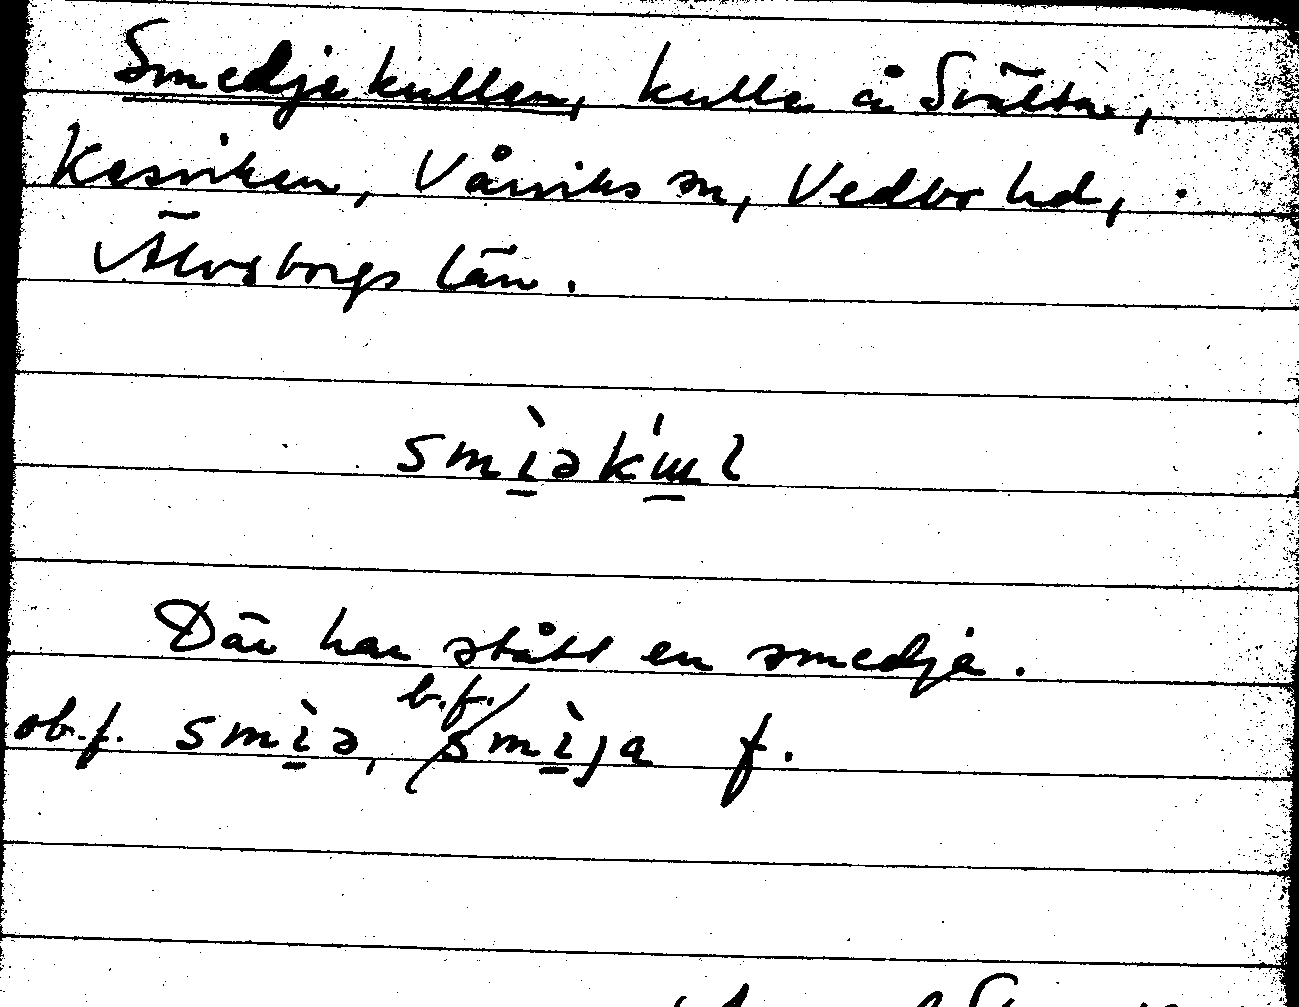 Smedjekullen, kulle å Svälta,
Kesviken, Vårviks sn, Vedbo hd,
Älvsborgs län.
smìəkɯ́l
Där har stått en smedja.
b.f.
ob.f. smìə, smìja f.